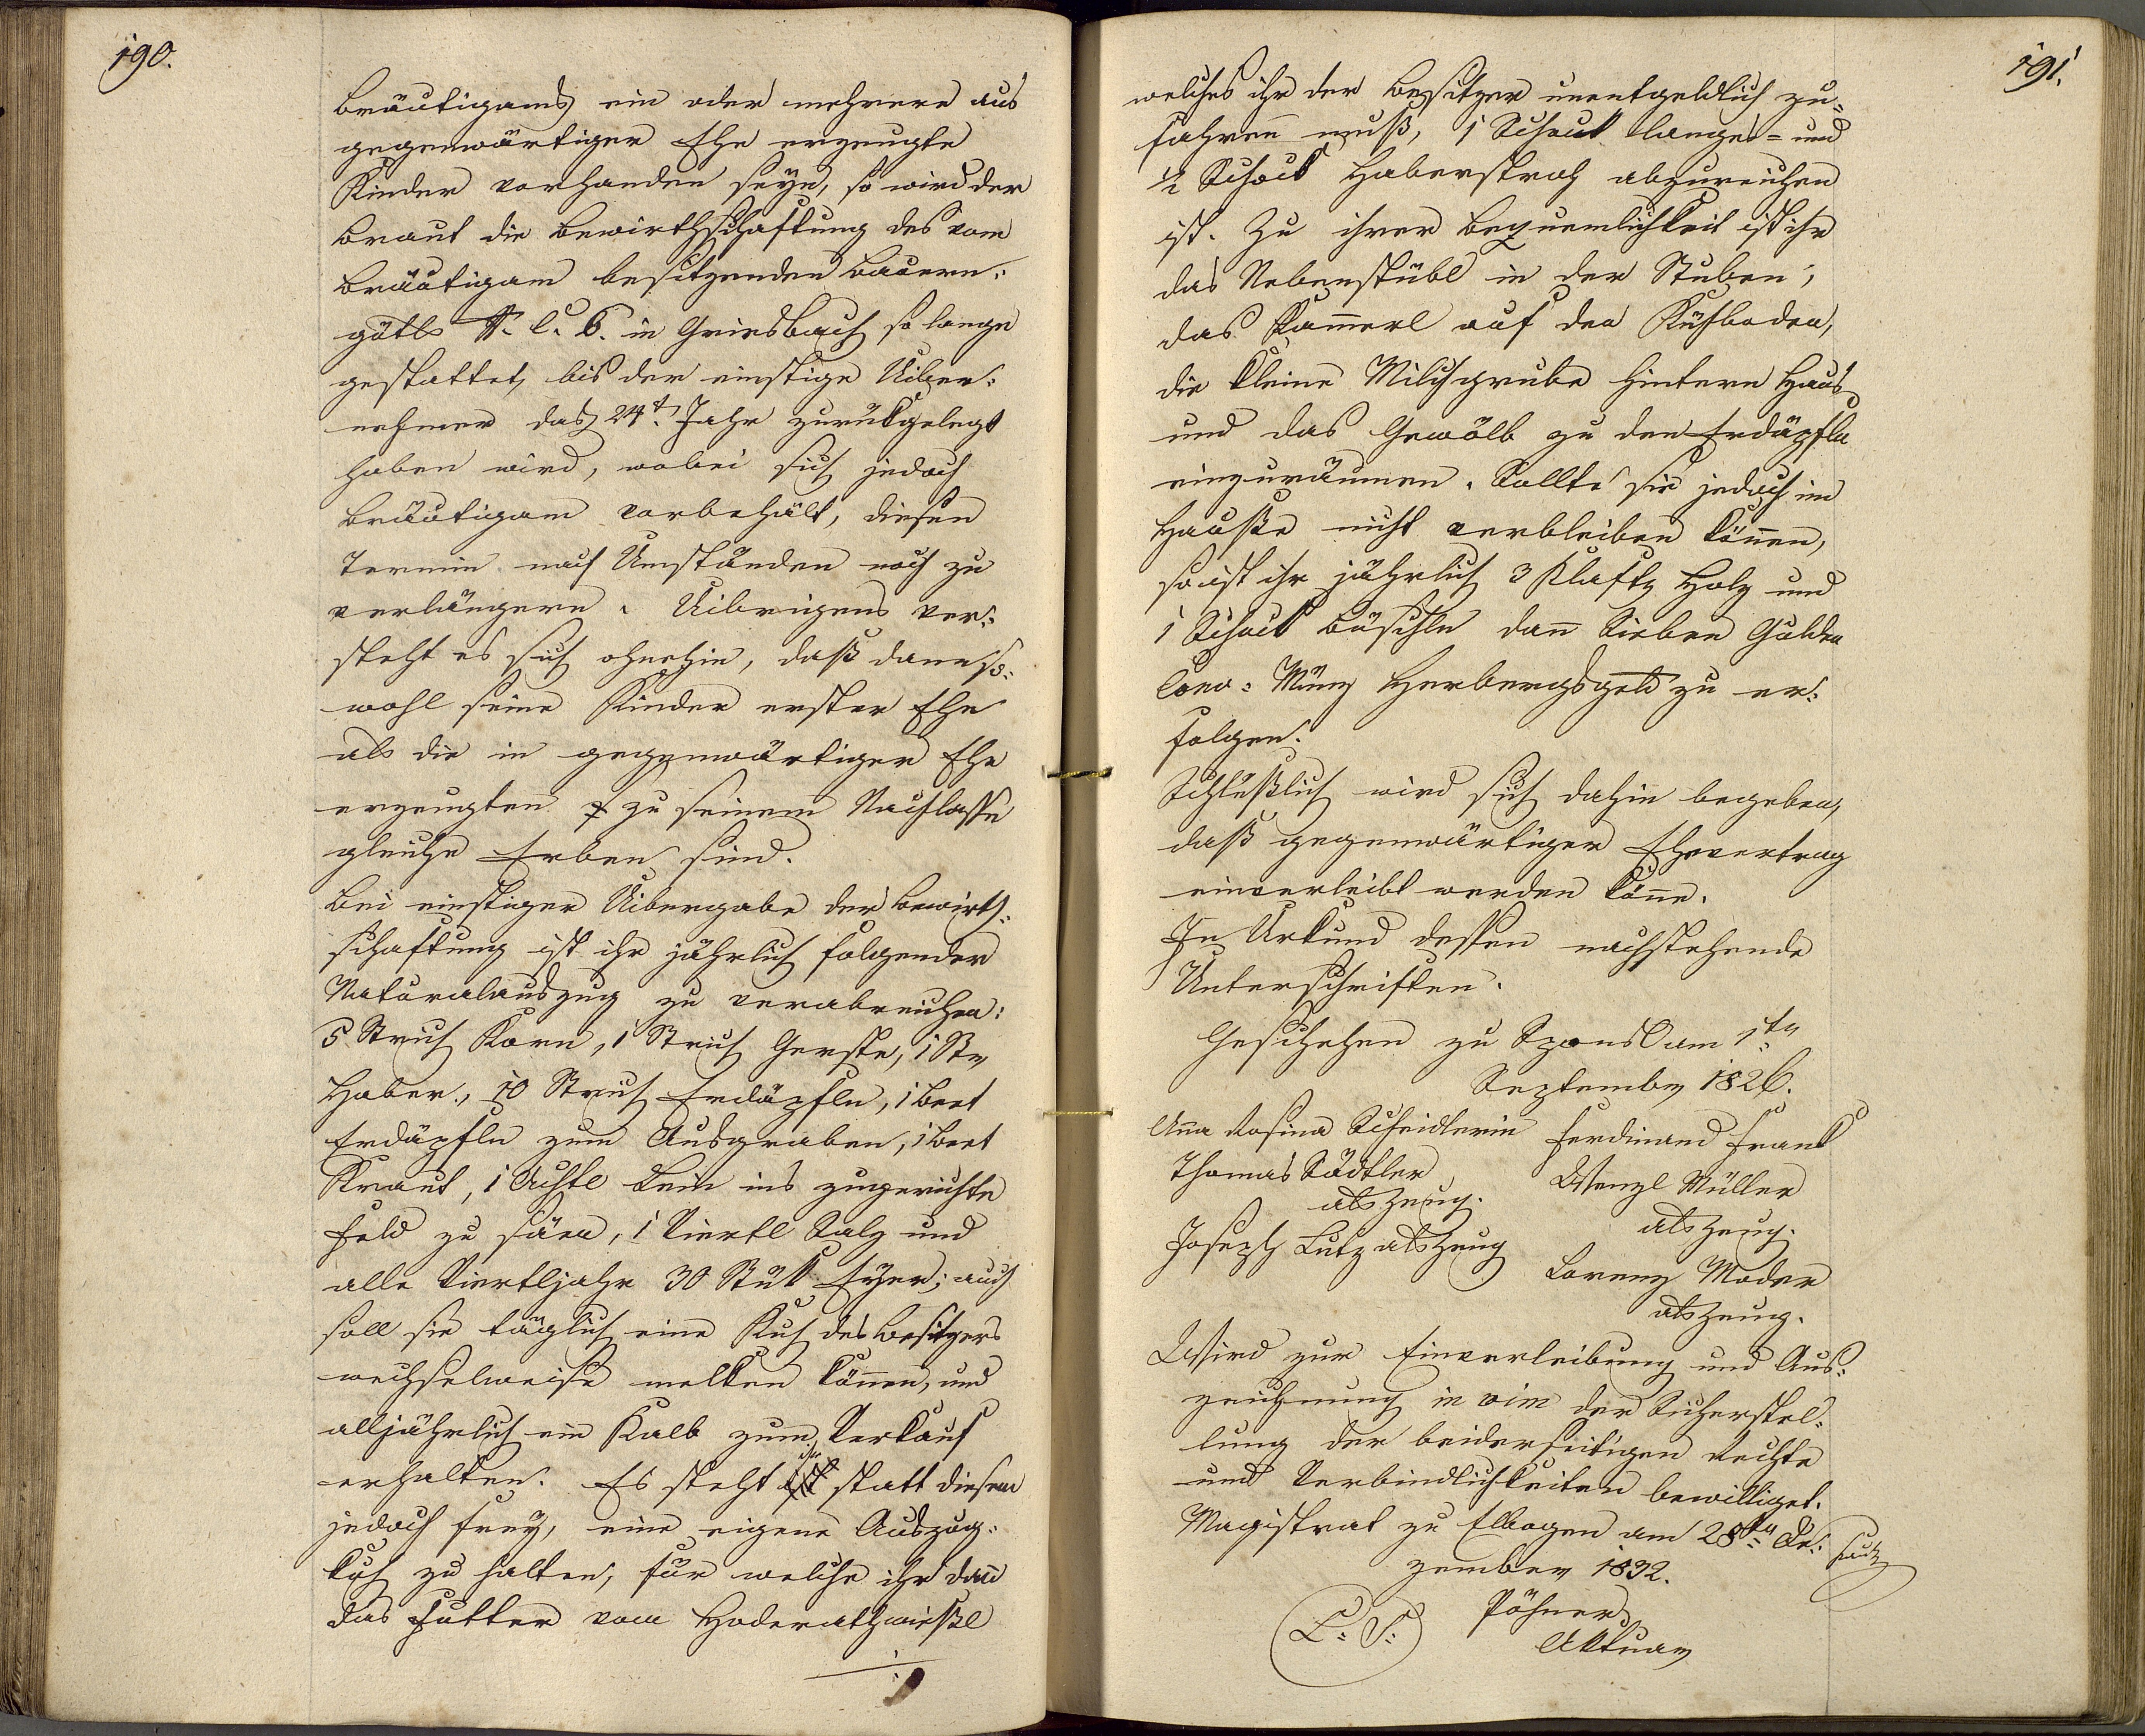 190.
Bräutigams ein oder mehrere aus
gegenwärtiger Ehe erzeugte
Kinder vorhanden seyn, so wird der
Braut die Bewirthschaftung des vom
Bräutigam besitzenden Bauern:
gütls N. C. 6. in Griesbach so lange
gestattet, bis der einstige Uiber:
nehmer das 24t. Jahr zurükgelegt
haben wird, wobei sich jedoch
Bräutigam vorbehält, diesen
Termin nach Umständen noch zu
verlängern. Uibrigens ver:
steht es sich ohnehin, daß dann so:
wohl seine Kinder erster Ehe
als die in gegenwärtiger Ehe
erzeugten zu seinem Nachlasse
gleiche Erben sind.
Bei einstiger Uibergabe der Bewirth:
schaftung ist ihr jährlich folgender
Naturalauszug zu verabreichen:
5 Strich Korn, 1 Strich Gerste, 1 Str
Haber, 10 Strich Erdäpfln, 1 Beet
Erdäpfln zum Ausgraben, 1 Beet
Kraut, 1 Achtl Lein ins zugerichte
Feld zu säen, 1 Viertl Salz und
alle Viertljahr 30 Stük Eyer; auch
soll sie täglich eine Kuh des Besitzers
wechselweise melken können, und
alljährlich ein Kalb zum Verkauf
erhalten. Es steht ihr statt diesem
jedoch frey, eine eigene Auszug:
kuh zu halten, für welche ihr dann
das Futter vom Hoderathwießl
191.
welches ihr der Besitzer unentgeldlich zu=
fahren muß, 1 Schock langes= und
1/2 Schock Haberstroh abzureichen
ist. Zu ihrer Bequemlichkeit ist ihr
das Nebenstübl in der Stuben,
das Kam̄erl auf den Kühboden,
die kleine Milchgrube hintern Haus
und das Gewölb zu den Erdäpfln
einzuräumen. Sollte sie jedoch im
Hauße nicht verbleiben kön̄en,
so ist ihr jährlich 3 Klaftr Holz und
1 Schock Büschln dan̄ Sieben Gulden
Conv: Münz Herbergsgeld zu er:
folgen.
Schlüßlich wird sich dahin begeben,
daß gegenwärtiger Ehevertrag
einverleibt werden kön̄e.
In Urkund dessen nachstehende
Unterschriften.
Geschehen zu Spansl am 1tn
September 1826.
An̄a Rosina Scheidlerin Ferdinand Frank
Thomas Södtler Wenzl Müller
als Zeug. als Zeug.
Joseph Lutz als Zeug Lorenz Moder
als Zeug.
Wird zur Einverleibung und Aus:
zeichnung in vim der Sicherstel:
lung der beiderseitigen Rechte
und Verbindlichkeiten bewilliget.
Magistrat zu Elbogen am 28tn De:
zember 1832.
L: S: Pöhner
Aktuar